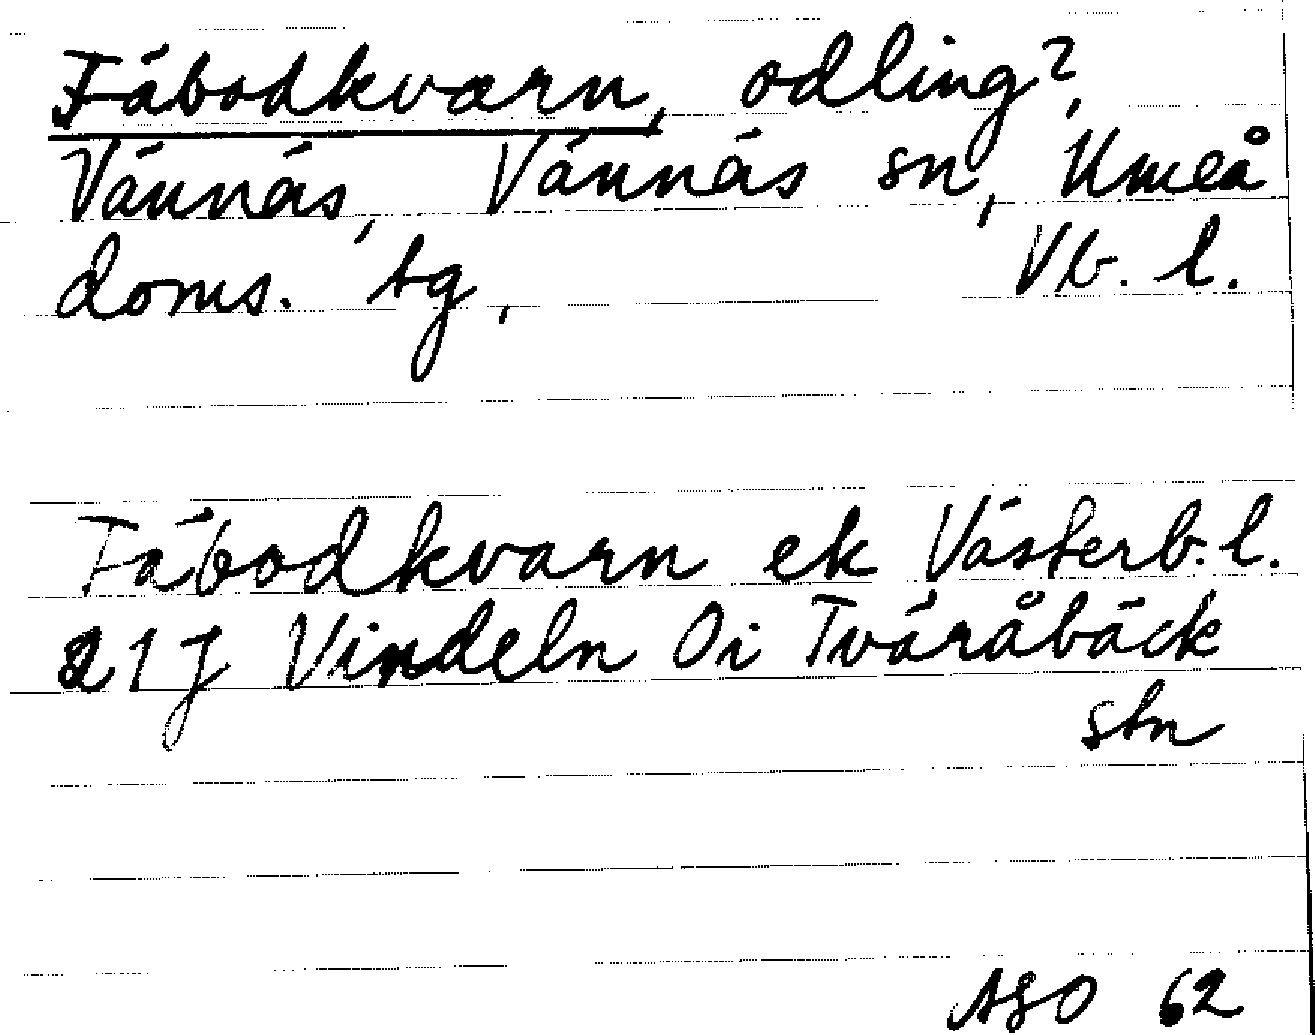 Fäbodkvarn, odling?,
Vännäs, Vännäs sn, Umeå
doms. tg, Vb. l.
Fäbodkvarn ek Västerb. l.
21J Vindeln Oi Tväråbäck
stn
ASO 62